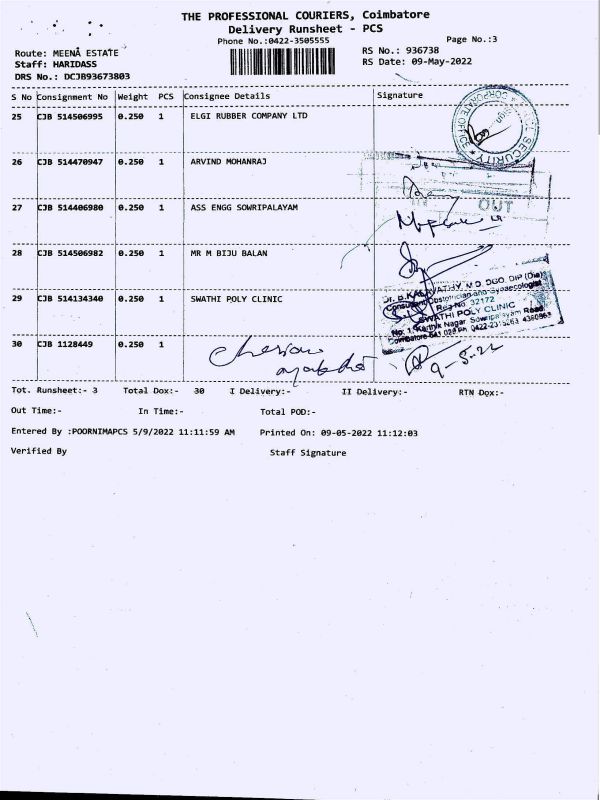 THE PROFESSIONAL COURIERS, Coimbatore
Delivery Runsheet - PCS
Phone No.:0422-3505555
Page No.:3
Route: MEENA ESTATE
RS No.: 936738
Staff: HARIDASS
RS Date: 09-May-2022
DRS No.: DCJB93673803
S No Consignment No Weight PCS Consignee Details Signature
25 CJB 514506995 0.250 1 ELGI RUBBER COMPANY LTD
CORPORATE OFFICE
SECURITY
26 CJB 514470947 0.250 1 ARVIND MOHANRAJ
OUT
27 CJB 514406980 0.250 1 ASS ENGG SOWRIPALAYAM
28 CJB 514506982 0.250 1 MR M BIJU BALAN
29 CJB 514134340 0.250 1 SWATHI POLY CLINIC
M.D. DGO. DIP (Dia)
Consultant Obstetrician and Gynaecologist
Reg No. 32172
SWATHI POLY CLINIC
30 CJB 1128449 0.250 1
9-5-22
Tot. Runsheet:- 3 Total Dox:- 30 I Delivery:- II Delivery:- RTN Dox:-
Out Time:- In Time:- Total POD:-
Entered By :POORNIMAPCS 5/9/2022 11:11:59 AM Printed On: 09-05-2022 11:12:03
Verified By Staff Signature